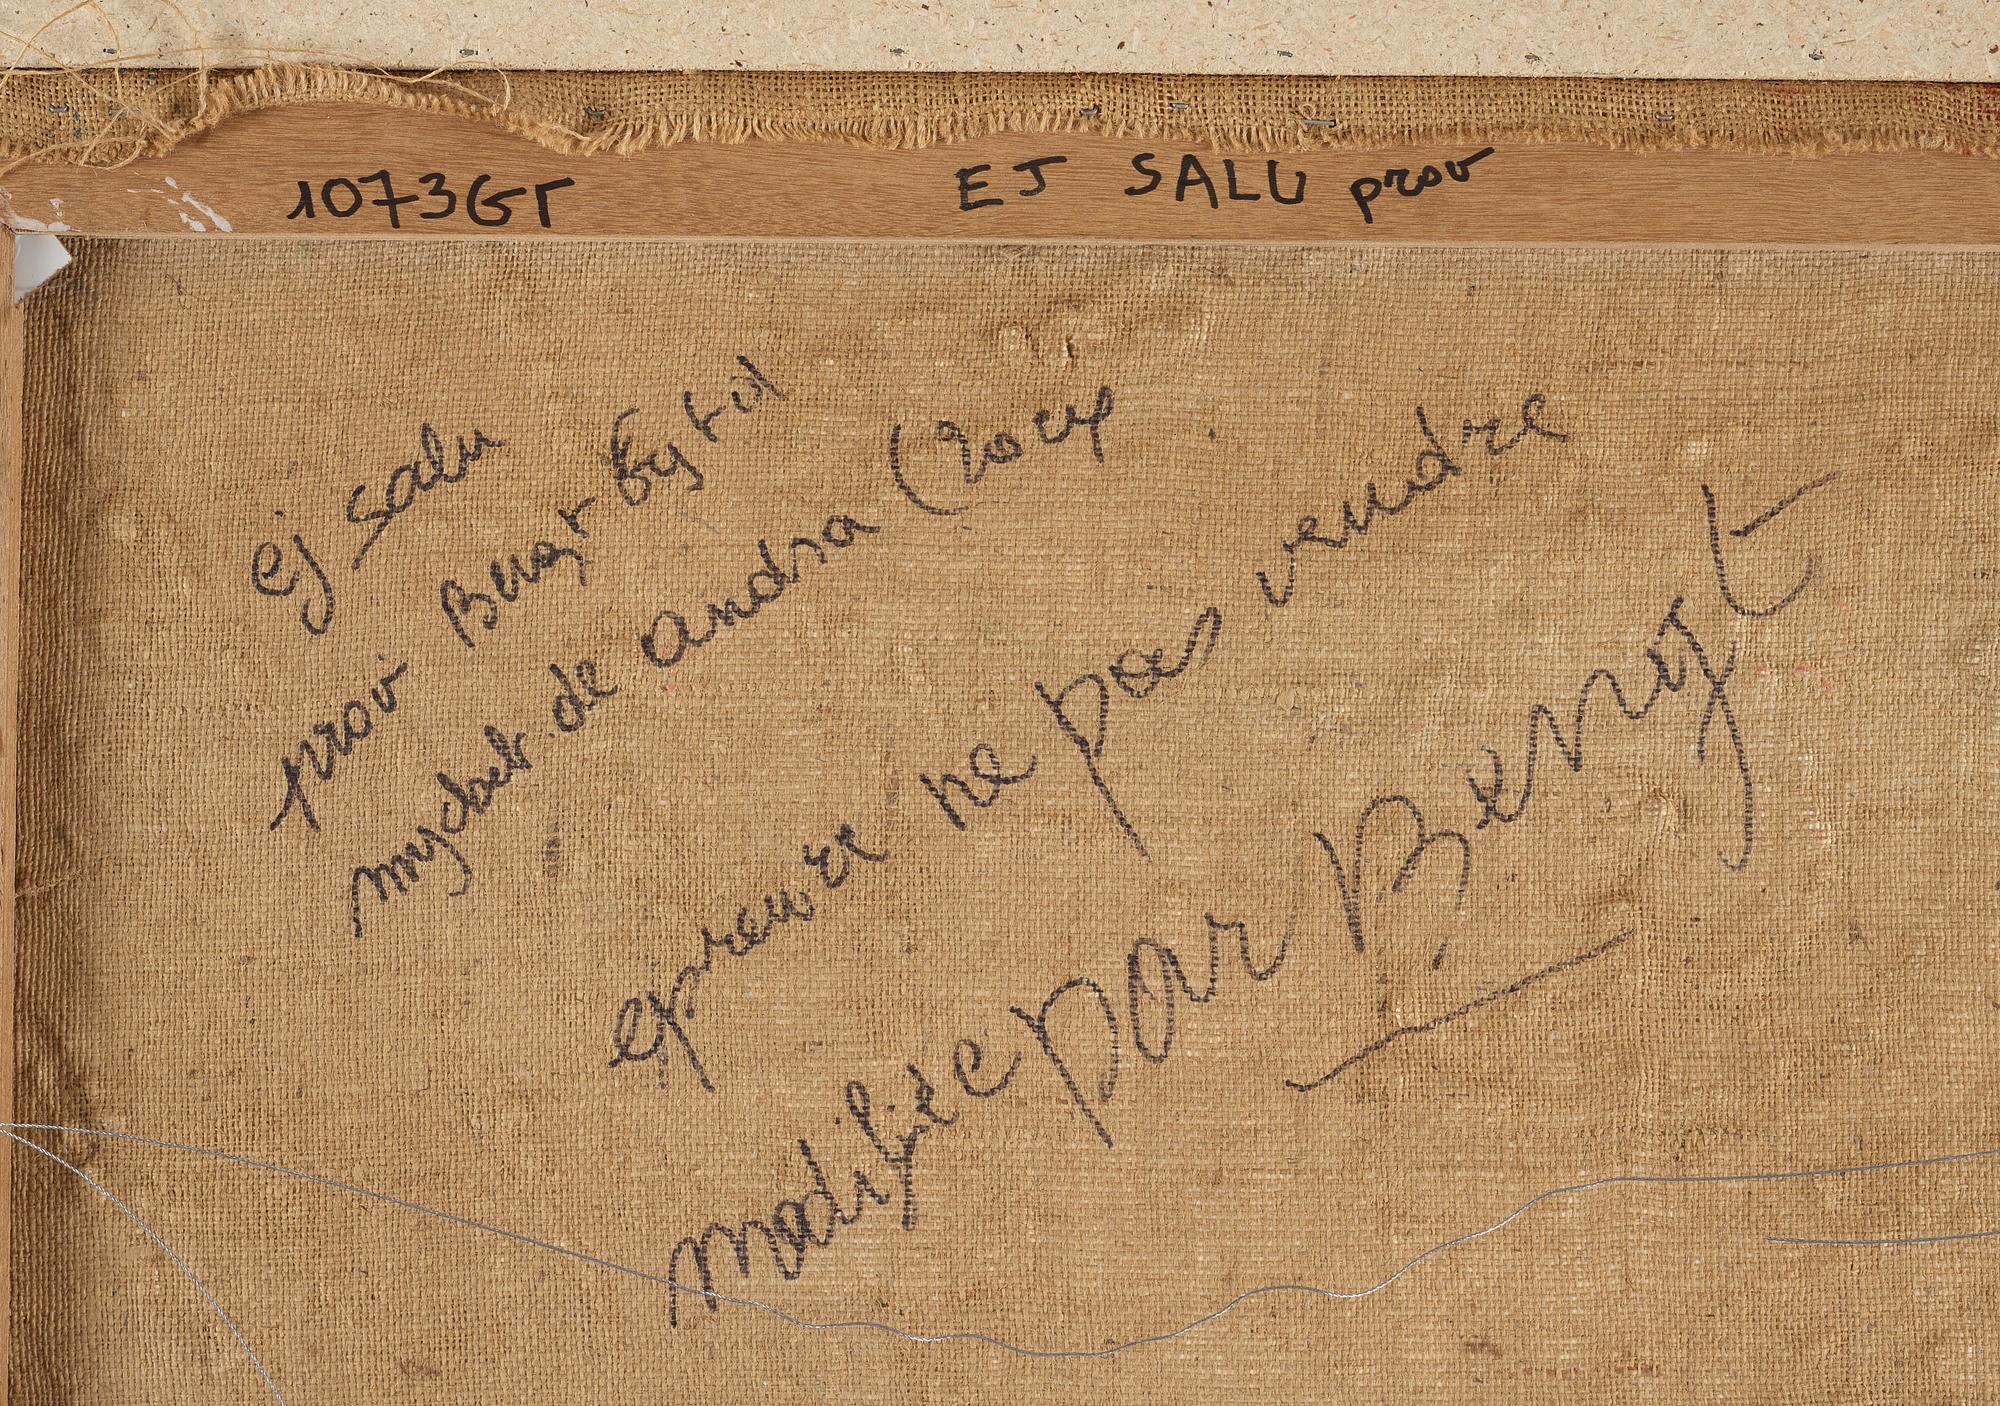 1073GT EJ SALU prov
ej salu
prov Bengt
mycket de andra
epreuve ne pas vendre
modifiée par Bengt